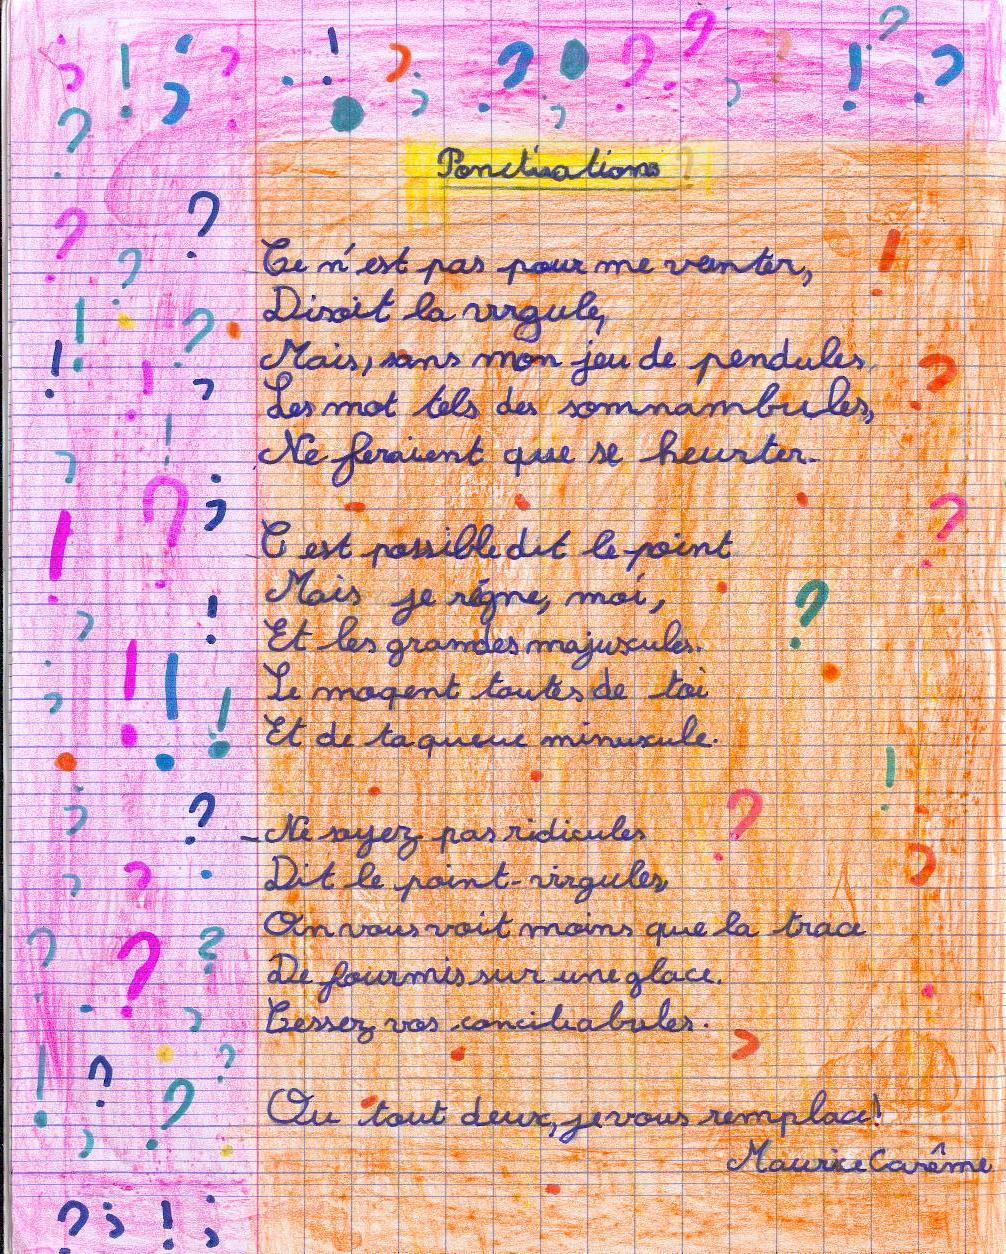 Ponctuations ?
Ce n'est pas pour me vanter,
Disait la virgule,
Mais, sans mon jeu de pendules,
Les mot tels des somnambules,
Ne feraient que se heurter.
C est possible dit le point
Mais je règne, moi,
Et les grandes majuscules.
Se moqent toutes de toi
Et de ta queue minuscule.
- Ne soyez pas ridicules
Dit le point-virgules,
On vous voit moins que la trace
De fourmis sur une glace.
Cessez vos conciliabules.
Ou tout deux, je vous remplace!
Maurice Carême